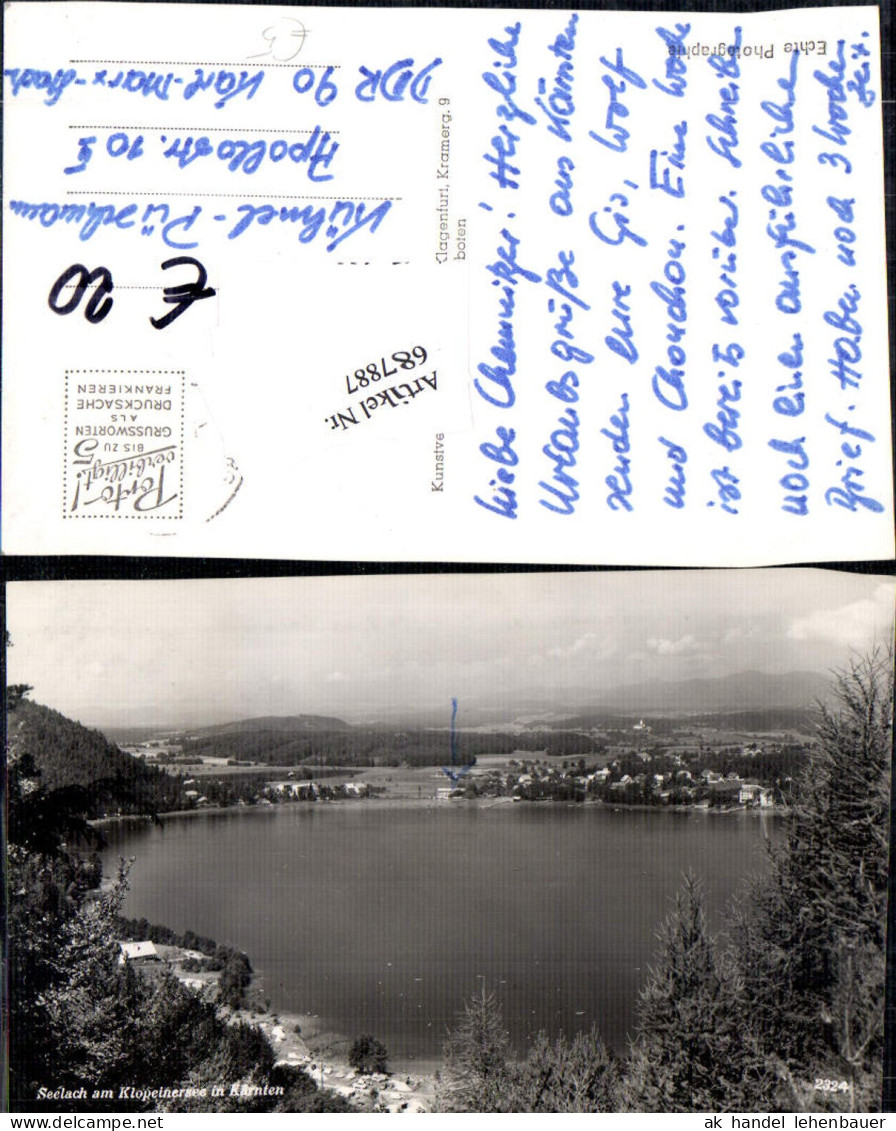 Liebe Chemnitzer! Herzliche
Urlaubsgrüße aus Kärnten
senden Eure Gis, Wolf
und Chouchou. Eine Woche
ist bereits vorüber. Schreibe
noch einen ausführlichen
Brief. Haben noch 3 Wochen
Zeit.
Echte Photographie
Kunstve
Klagenfurt, Kramerg. 9
boten
Artikel Nr.
687887
Porto-!
verbilligt!
BIS ZU 5
GRUSSWORTEN
ALS
DRUCKSACHE
FRANKIEREN
€ 20
Kühmel-Püschmann
Apollostr. 10
DDR 90 Karl-Marx-Stadt
€5
Seelach am Klopeinersee in Kärnten
2324
ak handel lehenbauer